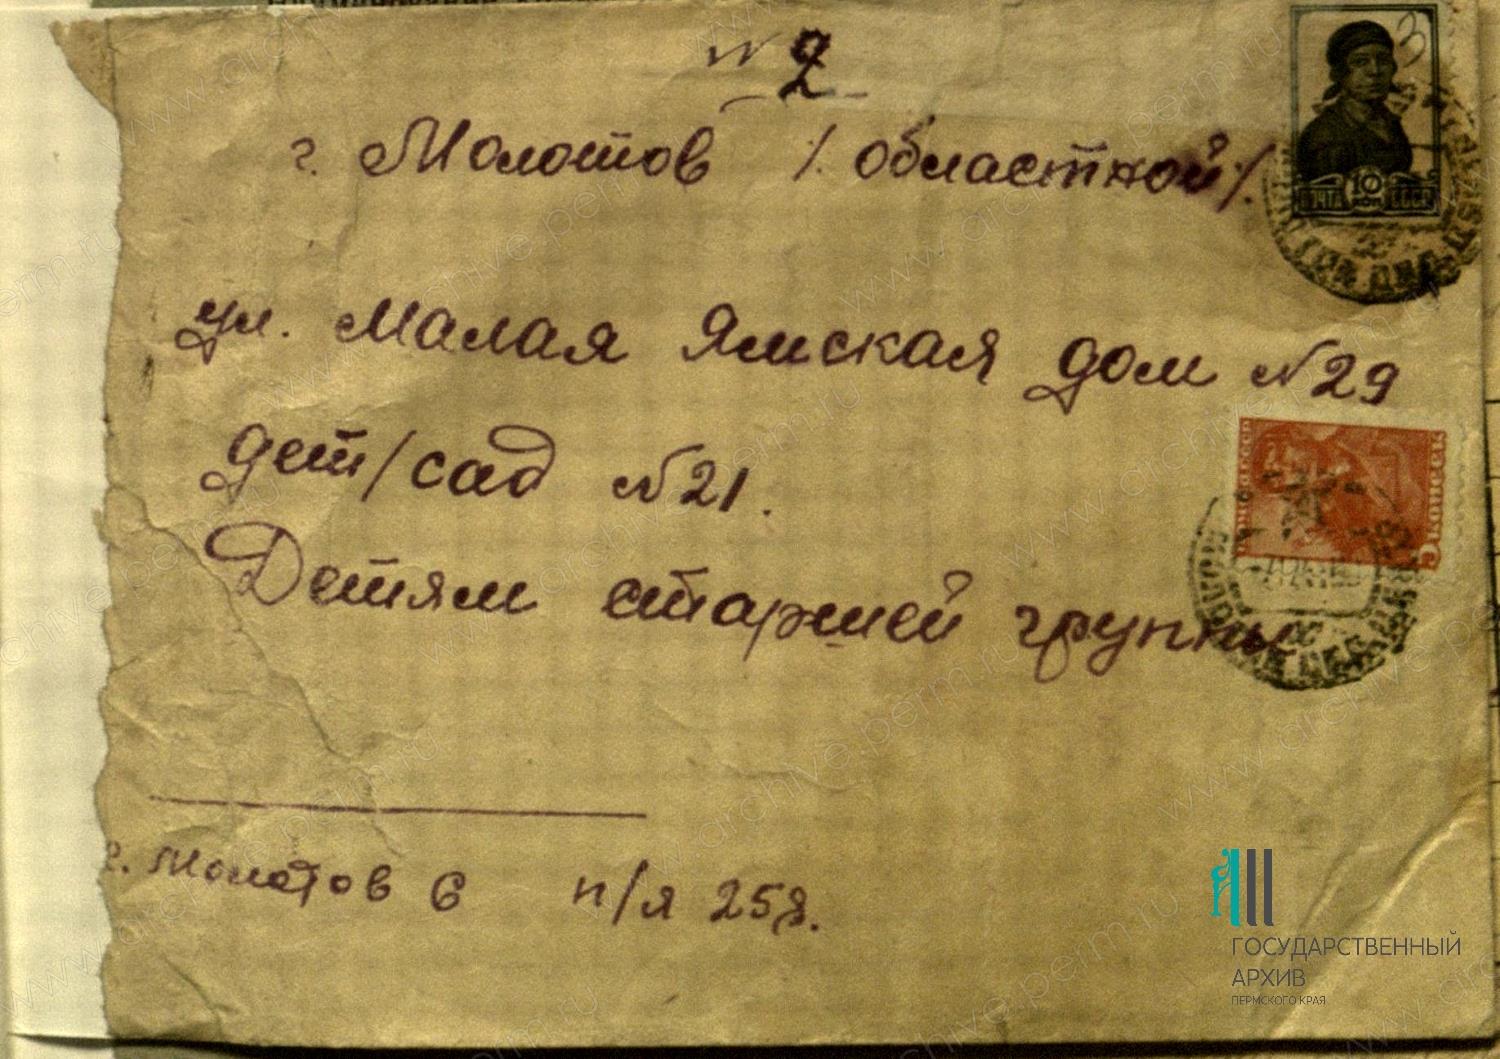 № 2
г. Молотов /. областной/.
ПОЧТА 10 КОП СССР
ул. Малая Ямская дом №29
дет/сад №21.
5 КОПЕЕК
Детям старшей группы
г. Молотов 6 п/я 258.
ГОСУДАРСТВЕННЫЙ
АРХИВ
ПЕРМСКОГО КРАЯ
www.archive.perm.ru